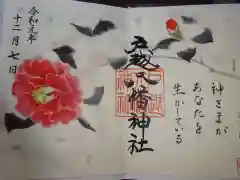 戸越八幡神社
神さまが
あなたを
生かしている
令和元年
十二月七日